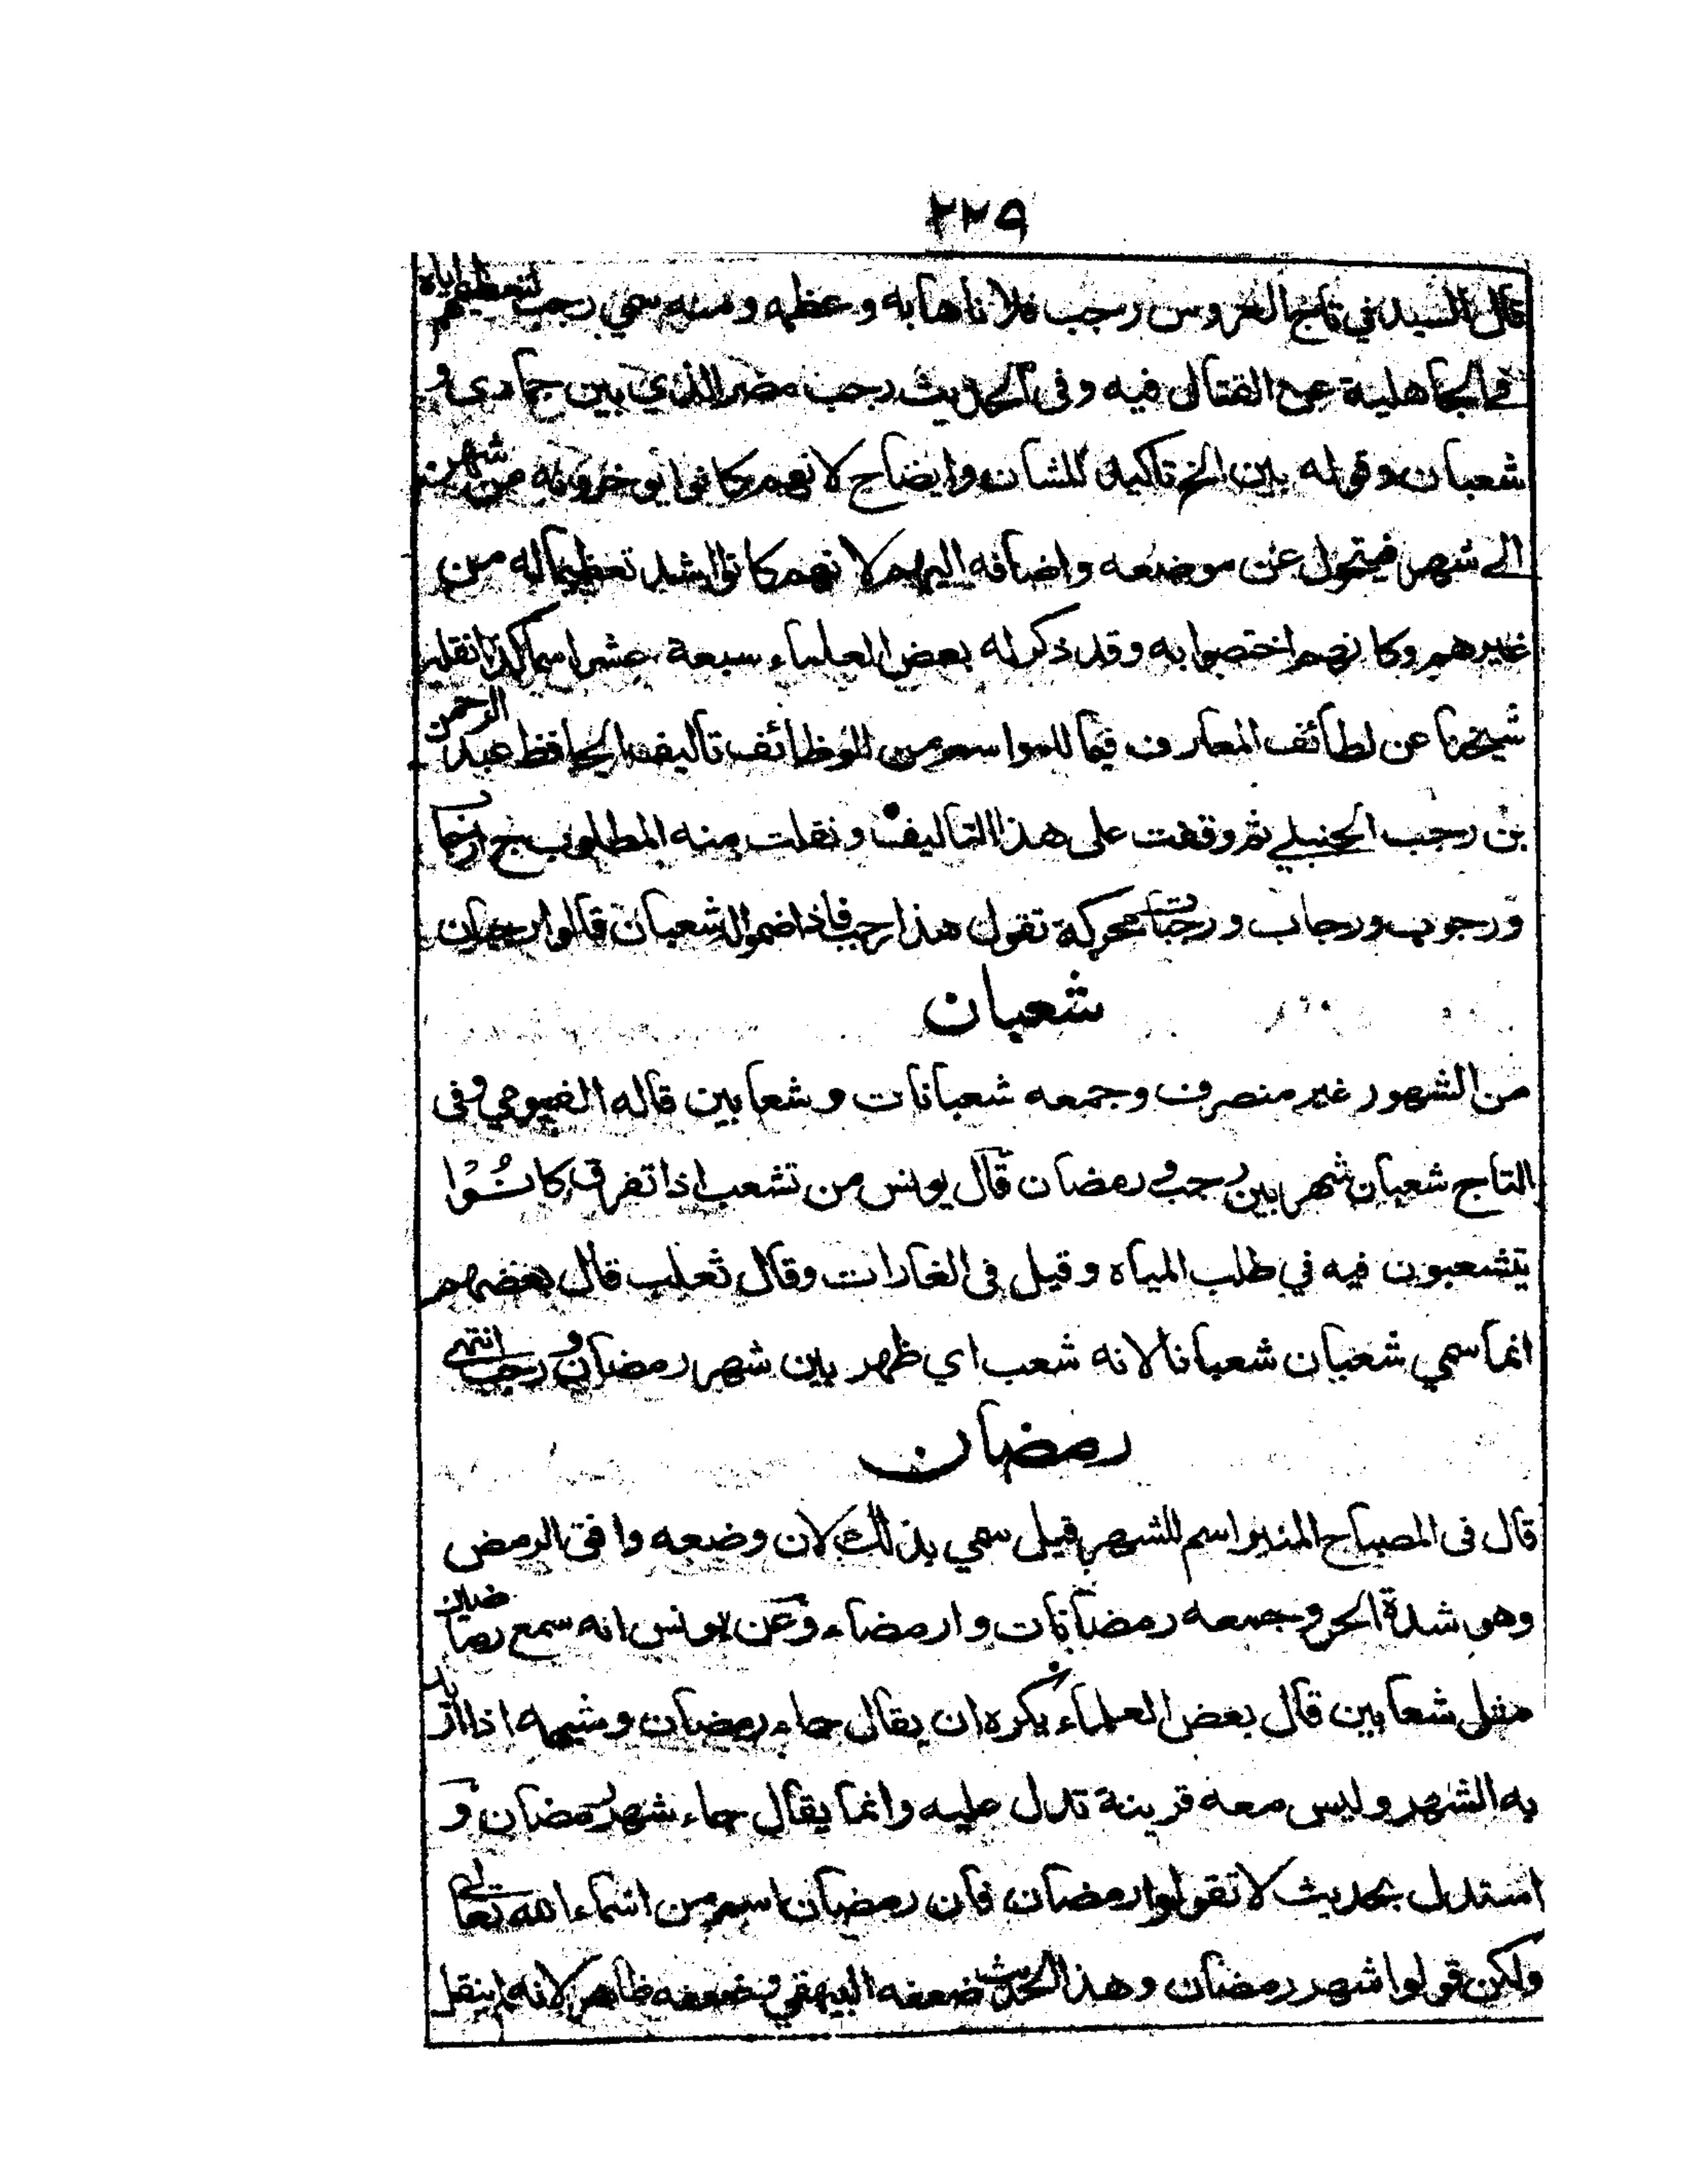 ٢٢٩
قال السيد في تاج العروس رجب فلانا هابه وعظمه ومنه سمي رجب لتعظيمهم اياه
في الجاهلية عن القتال فيه وفى الحديث رجب مضر الذي بين جمادى و
شعبان وقوله بين الخ تاكيد للشان وايضاح لانهم كانوا يوخرونه من شهر
الى شهر فيتحول عن موضعه واضافه اليهم لانهم كانوا اشد تعظيما له من
غيرهم وكانهم اختصوا به وقد ذكر له بعض العلماء سبعة عشر اسما كذا نقله
شيخنا عن لطائف المعارف فيما للمواسم من الوظائف تاليف الحافظ عبد الرحمن
بن رجب الحنبلي ثم وقفت على هذا التاليف ونقلت منه المطلوب ج ارجاب
ورجوب ورجاب ورجبات محركة تقول هذا رجب فاذا ضموا له شعبان قالوا رجبان
شعبان
من الشهور غير منصرف وجمعه شعبانات وشعابين قاله الفيومي وفى
التاج شعبان شهر بين رجب ورمضان قال يونس من تشعب اذا تفرق كانُوْا
يتشعبون فيه في طلب المياه وقيل فى الغارات وقال ثعلب قال بعضهم
انما سمي شعبان شعبانا لانه شعب اي ظهر بين شهر رمضان ورجب انتهى
رمضان
قال فى المصباح المنير اسم للشهر قيل سمي بذلك لان وضعه وافق الرمض
وهو شدة الحر وجمعه رمضانات وارمضاء وعن يونس انه سمع رماضين
مثل شعابين قال بعض العلماء يكره ان يقال جاء رمضان وشبهه اذا اريد
به الشهر وليس معه قرينة تدل عليه وانما يقال جاء شهر رمضان و
استدل بحديث لا تقولوا رمضان فان رمضان اسم من اسماء الله تعالى
ولكن قولوا شهر رمضان وهذا الحديث ضعفه البيهقي وضعفه ظاهر لانه لم ينقل